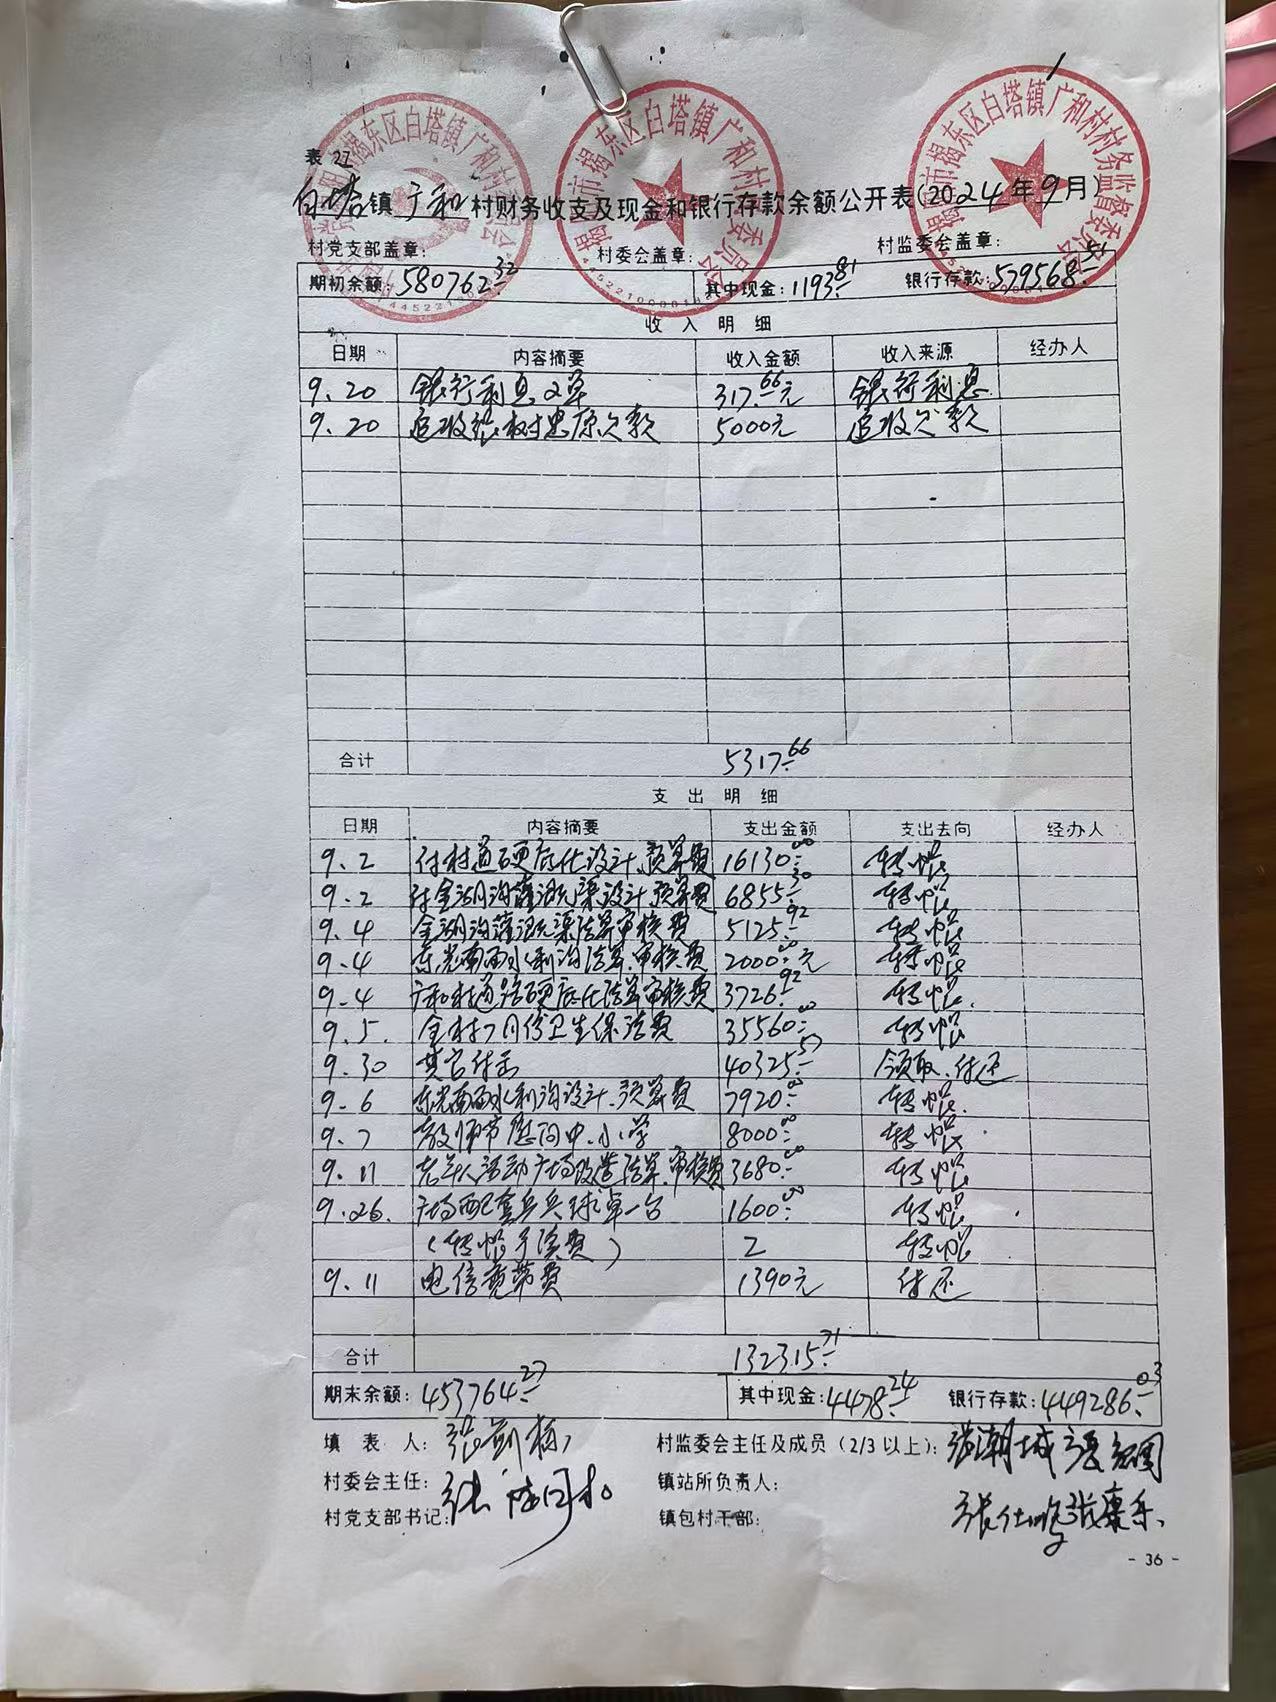 表 22
白塔镇广和村财务收支及现金和银行存款余额公开表(2024年9月)
村党支部盖章: 村委会盖章: 村监委会盖章:
期初余额: 580762.32 其中现金: 1193.81 银行存款: 579568.51
收入明细
日期 内容摘要 收入金额 收入来源 经办人
9.20 银行利息2单 317.66元 银行利息
9.20 追收张树忠原欠款 5000元 追收欠款
合计 5317.66
支出明细
日期 内容摘要 支出金额 支出去向 经办人
9.2 付村道硬底化设计.预算费 16130.00 转帐
9.2 付金湖沟灌溉渠设计.预算费 6855.30 转帐
9.4 金湖沟灌溉渠结算审核费 5125.92 转帐
9.4 东光南面水利沟结算.审核费 2000.00元 转帐
9.4 广和村道路硬底化结算审核费 3726.92 转帐.
9.5. 全村7月份卫生保洁费 35560.00 转帐
9.30 其它付出 40325.57 领取.付还
9.6 东光南面水利沟设计.预算费 7920.00 转帐.
9.7 教师节慰问中.小学 8000.00 转帐.
9.11 老年人活动广场改造结算.审核费 3680.00 转帐
9.26. 广场配套乒乓球桌一台 1600.00 转帐
(转帐手续费) 2 转帐
9.11 电信宽带费 1390元 付还
合计 132315.71
期末余额: 453764.27 其中现金: 4478.24 银行存款: 449286.03
填表人: 村监委会主任及成员(2/3以上):
村委会主任: 镇站所负责人:
村党支部书记: 镇包村干部:
- 36 -